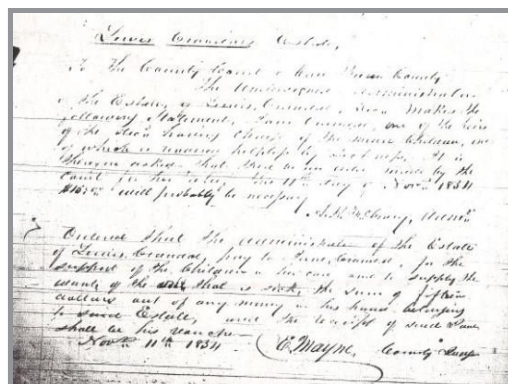 Lewis Crandals Estate,
To the County Court Van Buren County
The Undersigned Administrator
of the Estate of Lewis Crandal Makes the
following Statement, Jane Crandal, one of the heirs
of the having charge of the minor Children, one
of which is helpless by sickness. It is
therefore asked that there be an order made by the
Court for the 11th day of Novr 1854
$15.00 will probably be necessary
Admr
Ordered that the administrator of the Estate
of Lewis Crandal, pay to Jane Crandal for the
support of the Children in her care and to supply the
wants of the one that is sick, the sum of fifteen
dollars out of any money in his hands belonging
to said Estate, and the receipt of said Jane
shall be his voucher
Novr 11th 1854 C. Mayne, County Judge